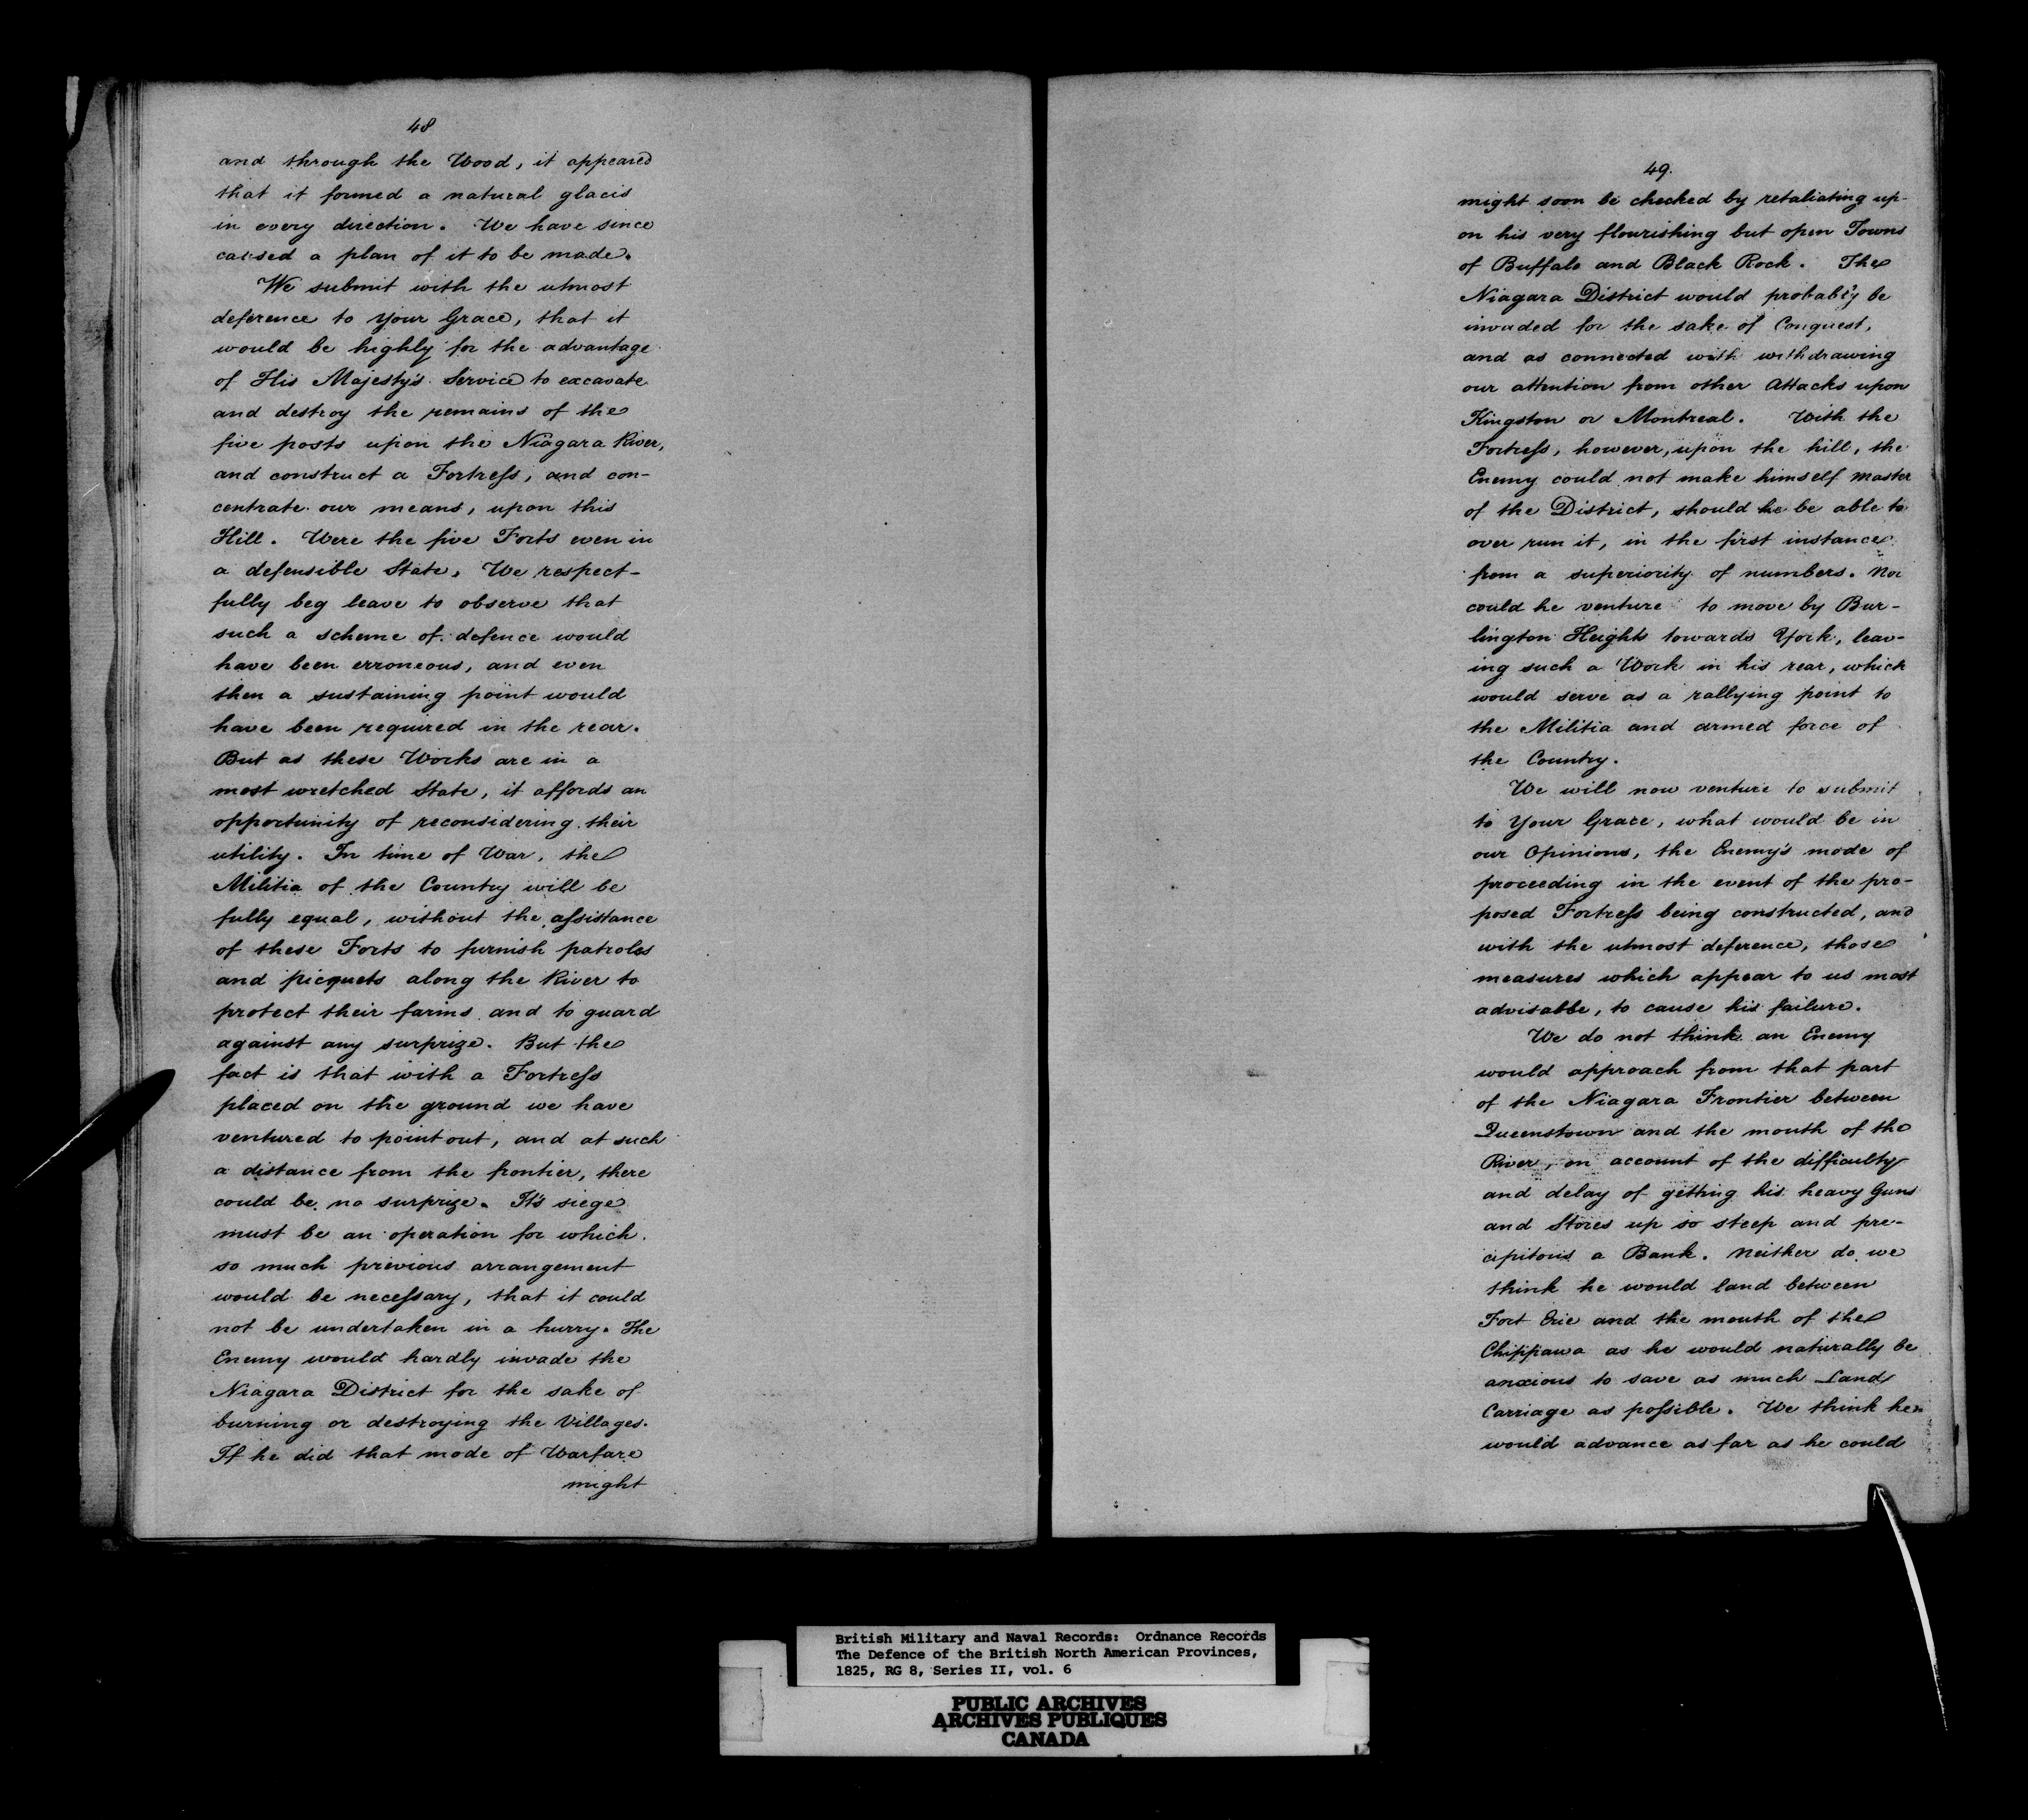 48
and through the Wood, it appeared
that it formed a natural glacis
in every direction. We have since
caused a plan of it to be made.
We submit with the utmost
deference to Your Grace, that it
would be highly for the advantage
of His Majesty's Service to excavate
and destroy the remains of the
five posts upon the Niagara River,
and construct a Fortreſs, and con-
centrate our means, upon this
Hill. Were the five Forts even in
a defensible State, We respect-
fully beg leave to observe that
such a scheme of defence would
have been erroneous, and even
then a sustaining point would
have been required in the rear.
But as these Works are in a
most wretched State, it affords an
opportunity of reconsidering their
utility. In time of War, the
Militia of the Country will be
fully equal, without the aſsistance
of these Forts to furnish patroles
and picquets along the River to
protect their farms and to guard
against any surprize. But the
fact is that with a Fortreſs
placed on the ground we have
ventured to point out, and at such
a distance from the frontier, there
could be no surprize. It's siege
must be an operation for which
so much previous arrangement
would be neceſsary, that it could
not be undertaken in a hurry. The
Enemy would hardly invade the
Niagara District for the sake of
burning or destroying the Villages.
If he did that mode of Warfare
might
49.
might soon be checked by retaliating up-
on his very flourishing but open Towns
of Buffalo and Black Rock. The
Niagara District would probably be
invaded for the sake of Conquest,
and as connected with withdrawing
our attention from other Attacks upon
Kingston or Montreal. With the
Fortreſs, however, upon the hill, the
Enemy could not make himself Master
of the District, should he be able to
over run it, in the first instance
from a superiority of numbers. Nor
could he venture to move by Bur-
lington Heights towards York, leav-
ing such a Work in his rear, which
would serve as a rallying point to
the Militia and armed force of
the Country.
We will now venture to submit
to Your Grace, what would be in
our Opinions, the Enemy's mode of
proceeding in the event of the pro-
posed Fortreſs being constructed, and
with the utmost deference, those
measures which appear to us most
advisable, to cause his failure.
We do not think an Enemy
would approach from that part
of the Niagara Frontier between
Queenstown and the mouth of the
River, on account of the difficulty
and delay of getting his heavy Guns
and Stores up so steep and pre-
cipitous a Bank. Neither do we
think he would land between
Fort Erie and the mouth of the
Chippawa as he would naturally be
anxious to save as much Land
Carriage as poſsible. We think he
would advance as far as he could
British Military and Naval Records: Ordnance Records
The Defence of the British North American Provinces,
1825, RG 8, Series II, vol. 6
PUBLIC ARCHIVES
ARCHIVES PUBLIQUES
CANADA